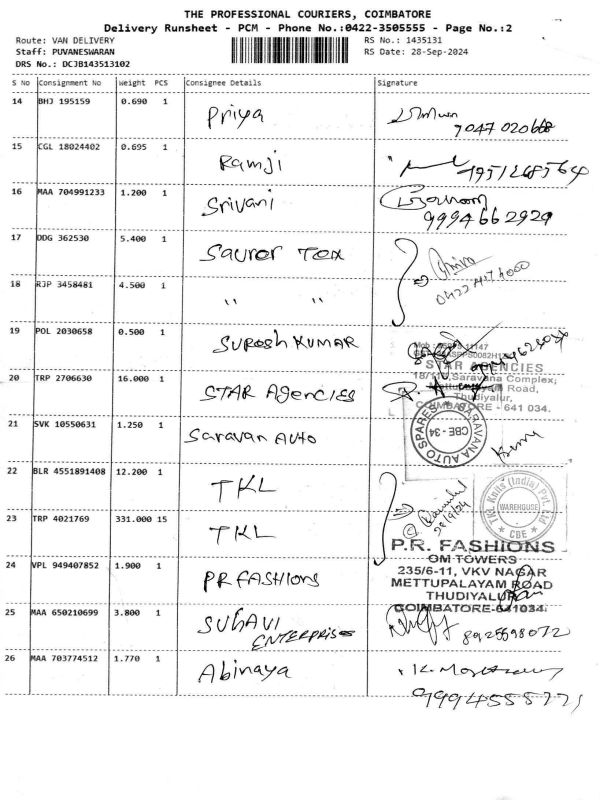 THE PROFESSIONAL COURIERS, COIMBATORE
Delivery Runsheet - PCM - Phone No.:0422-3505555 - Page No.:2
Route: VAN DELIVERY RS No.: 1435131
Staff: PUVANESWARAN RS Date: 28-Sep-2024
DRS No.: DCJB143513102
S No Consignment No Weight PCS Consignee Details Signature
14 BHJ 195159 0.690 1 Priya
7047 020668
15 CGL 18024402 0.695 1 Ramji
16 MAA 704991233 1.200 1 Srivani
9994662929
17 DDG 362530 5.400 1 Saurer Tex
18 RJP 3458481 4.500 1 " "
19 POL 2030658 0.500 1 SURESH KUMAR
STAR AGENCIES
18/110,Saravana Complex,
Mettupalayam Road,
Thudiyalur,
COIMBATORE - 641 034.
20 TRP 2706630 16.000 1 STAR AgenciES
21 SVK 10550631 1.250 1 Saravan AUTO
SARAVANA AUTO SPARES
CBE - 34
22 BLR 4551891408 12.200 1 TKL
28/9/24
TKL Knits (India) Pvt. Ltd
WAREHOUSE
CBE
23 TRP 4021769 331.000 15 TKL
24 VPL 949407852 1.900 1 PR FASHIONS
P.R. FASHIONS
OM TOWERS
235/6-11, VKV NAGAR
METTUPALAYAM ROAD
THUDIYALUR
COIMBATORE-641034
25 MAA 650210699 3.800 1 SUHAVI
ENTERPRISES
8925698072
26 MAA 703774512 1.770 1 Abinaya